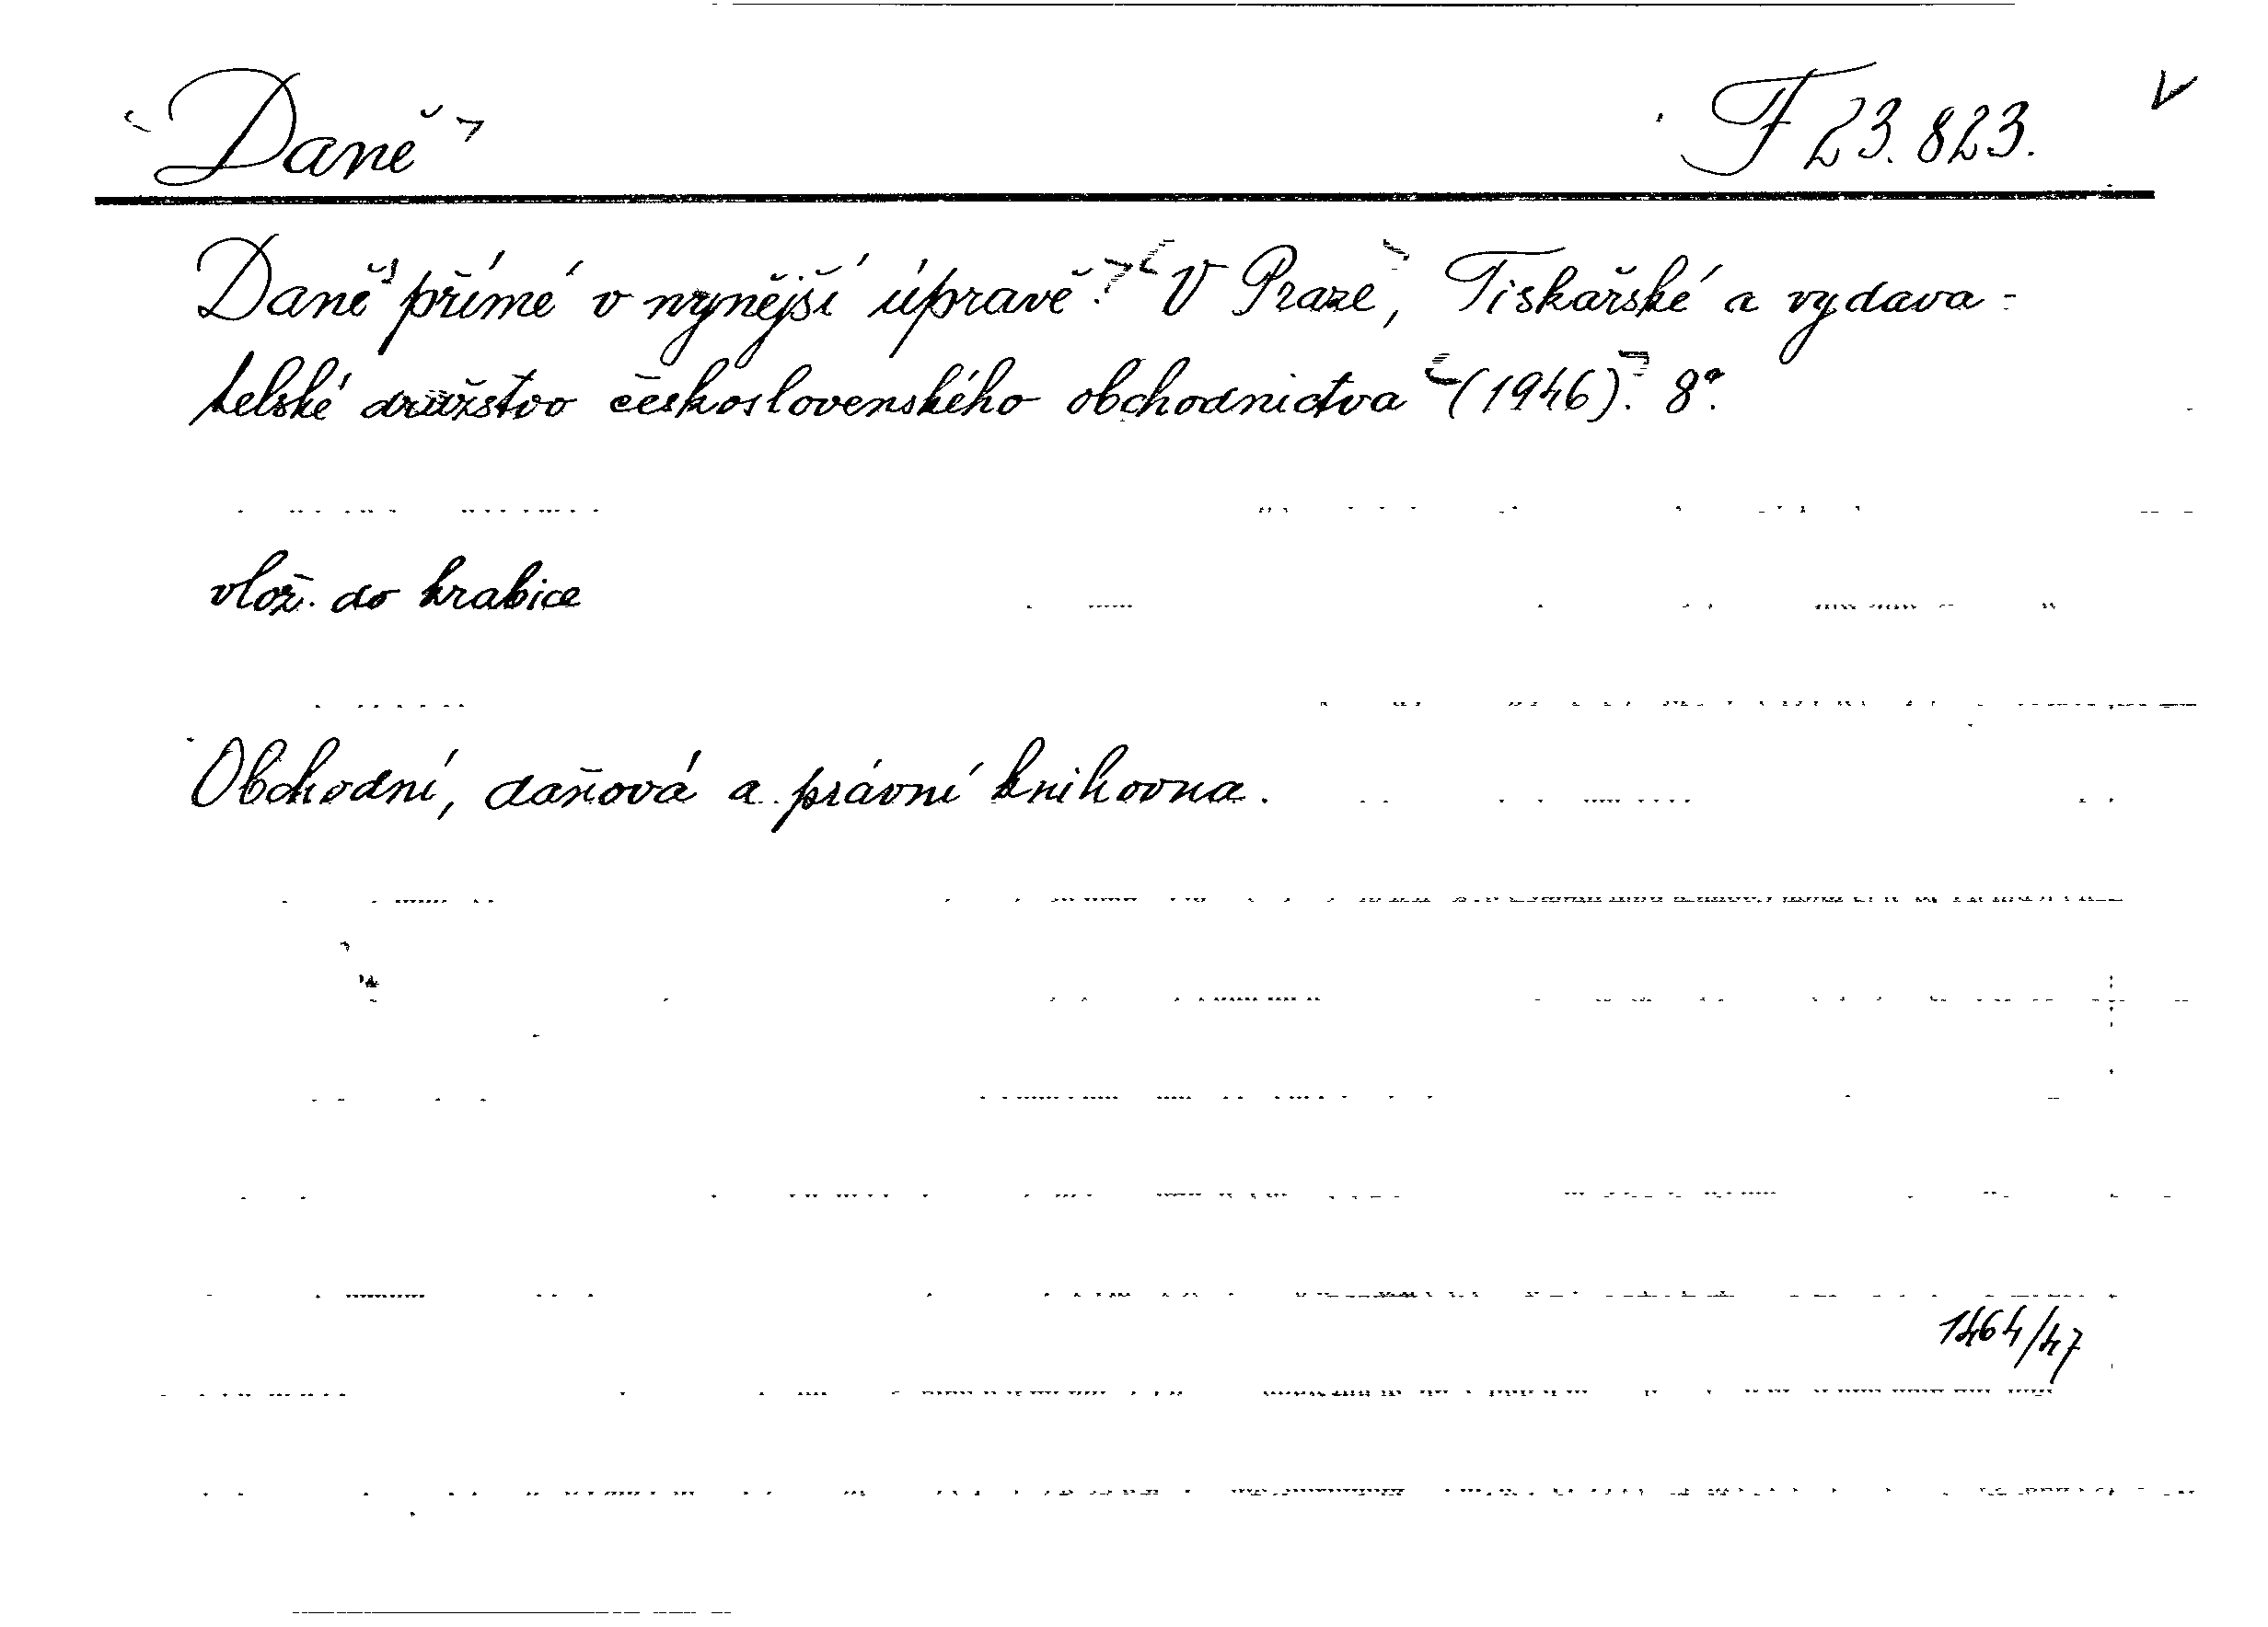 Daně F 23.823. V
Daně přímé v nynější úpravě. V Praze, Tiskařské a vydava-
telské družstvo československého obchodnictva (1946). 8°.
vlož. do krabice
Obchodní, daňová a právní knihovna.
1464/47